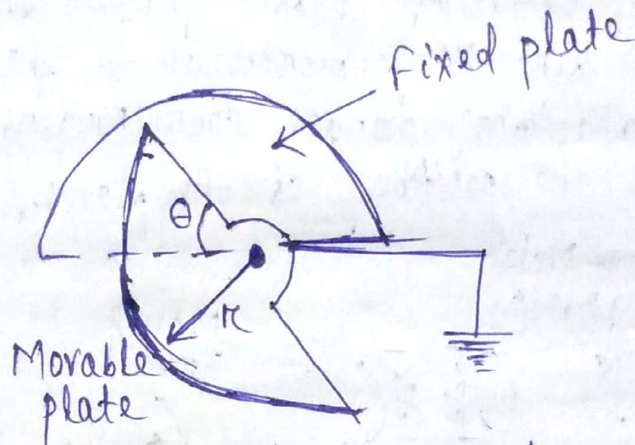 Fixed plate
θ
r
Movable
plate